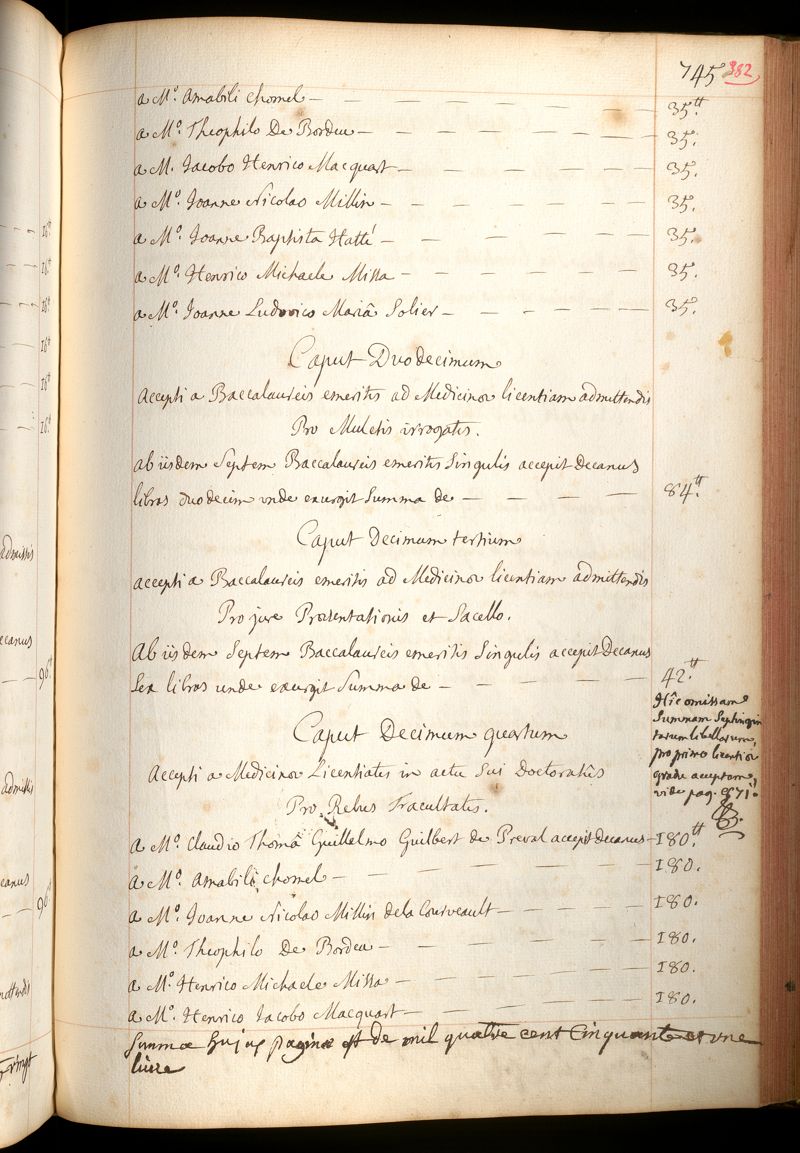 745 382
a M.º Amabili Chomel — — — — — — — 35.tt
a M.º Theophilo De Bordeu — — — — — — 35.
a M. Jacobo Henrico Macquart — — — — — 35.
a M.º Joanne Nicolao Millin — — — — — — 35.
a M.º Joanne Baptista Hatté — — — — — 35.
a M.º Henrico Michaele Missa — — — — — — 35.
a M.º Joanne Ludovico Mariâ Solier — — — — — — 35.
Caput Duodecimum
Accepti a Baccalaureis emeritis ad Medicinæ licentiam admittendis
Pro Mulctis irrogatis.
ab iisdem Septem Baccalaureis emeritis Singulis accepit Decanus
libras duodecim unde exurgit Summa de — — — — 84.tt
Caput Decimum tertium
accepti a Baccalaureis emeritis ad Medicinæ licentiam admittendis
Pro jure Præsentationis et Sacello.
Ab iisdem Septem Baccalaureis emeritis Singulis accepit Decanus
Sex libras unde exurgit Summa de — — — — — — 42.tt
Hîc omissam
Summam Septingin
tarum libellarum,
pro primo licentiæ
gradu acceptam,
vide pag. 871.
Caput Decimum quartum
Accepti a Medicinæ Licentiatis in actu Sui Doctoratûs
Pro Rebus Facultatis.
a M.º Claudio Thomâ Guillelmo Guilbert de Preval accepit decanus — 180.tt
a M.º Amabili Chomel — — — — — — — 180.
a M.º Joanne Nicolao Millin de la Courveault — — — — — 180.
a M.º Theophilo De Bordeu — — — — — — 180.
a M.º Henrico Michaele Missa — — — — — — 180.
a M.º Henrico Jacobo Macquart — — — — — — 180.
Summa hujus paginæ est de mil quatre cent Cinquante et une
livre
16tt
16tt
16tt
16tt
16tt
16tt
admissis
decanus
96.tt
admissis
decanus
96.tt